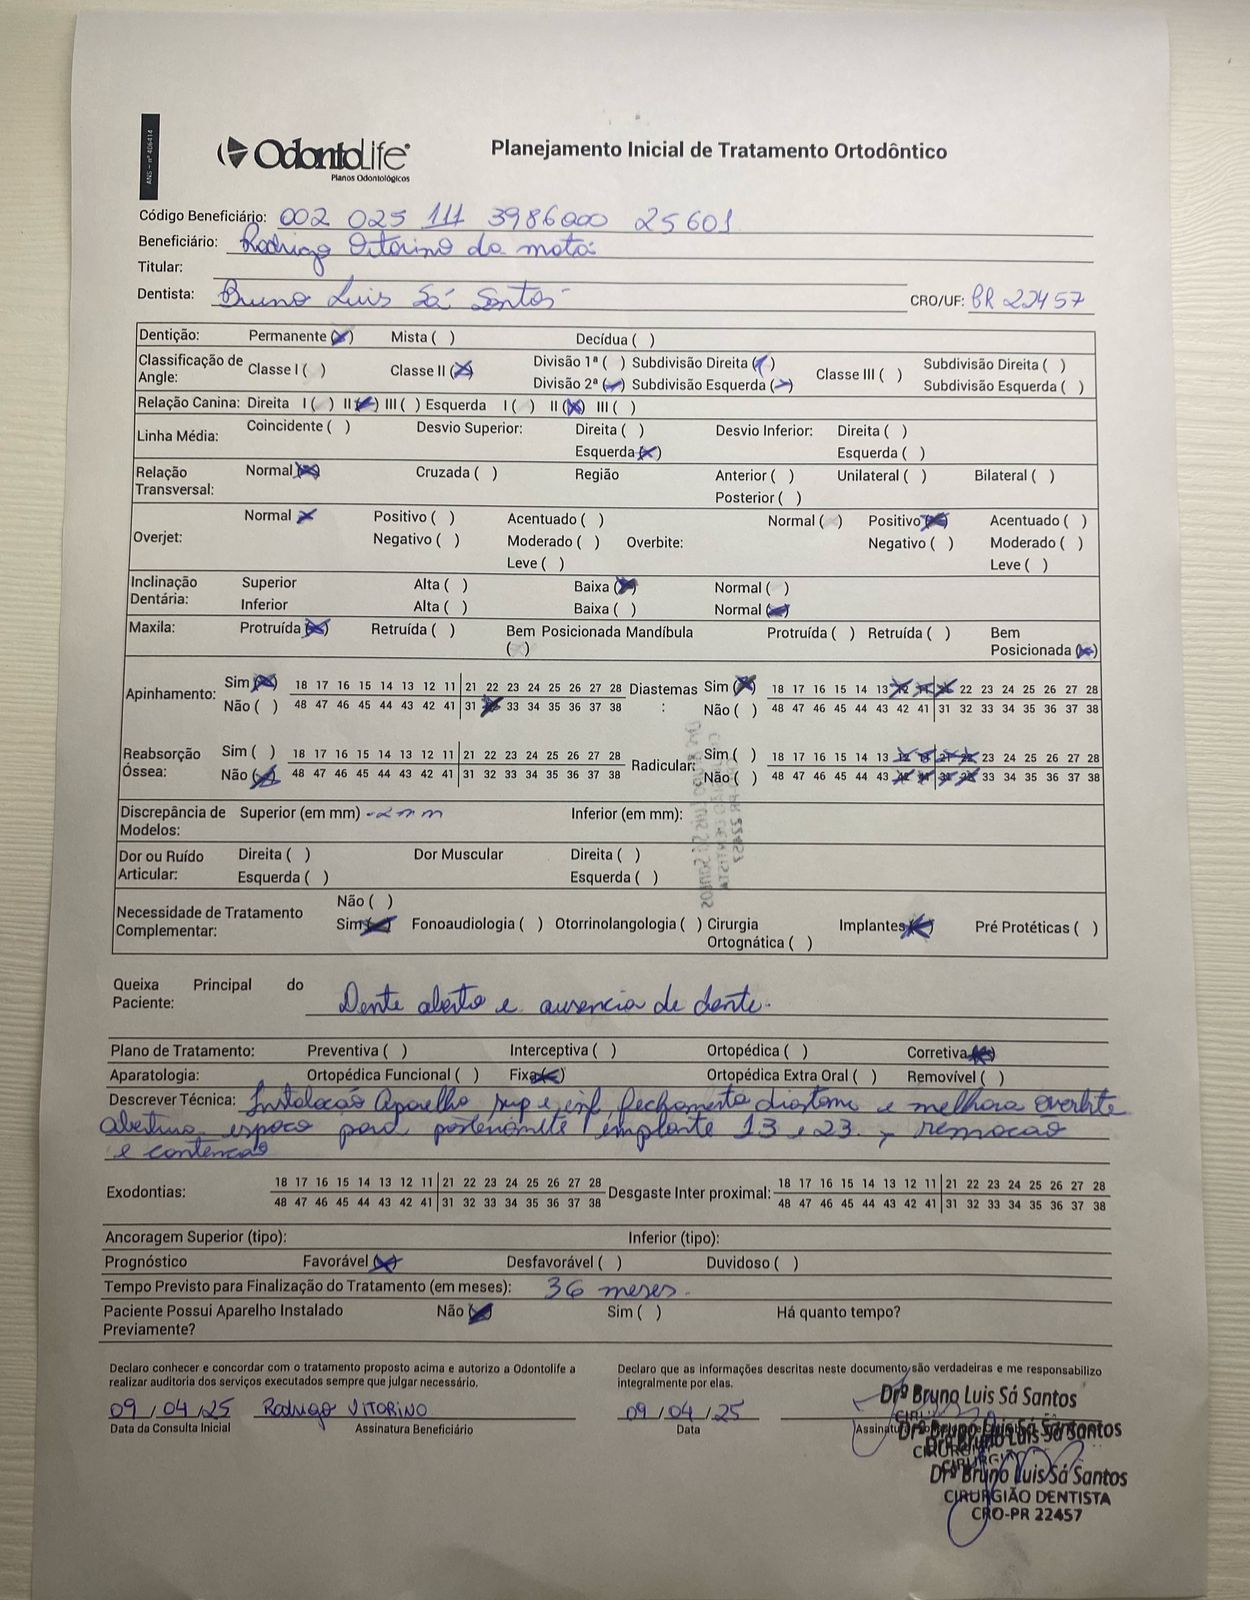 ANS - nº 406414
OdontoLife®
Planos Odontológicos
Planejamento Inicial de Tratamento Ortodôntico
Código Beneficiário: 002 025 111 3986000 25601
Beneficiário: Rodrigo Vitorino da mota
Titular:
Dentista: Bruno Luis Sá Santos CRO/UF: PR 22457
Dentição: Permanente (x) Mista ( ) Decídua ( )
Classificação de Angle: Classe I ( ) Classe II (x) Divisão 1ª ( ) Subdivisão Direita (/) Classe III ( ) Subdivisão Direita ( )
Divisão 2ª (/) Subdivisão Esquerda (/) Subdivisão Esquerda ( )
Relação Canina: Direita I ( ) II (x) III ( ) Esquerda I ( ) II (x) III ( )
Linha Média: Coincidente ( ) Desvio Superior: Direita ( ) Desvio Inferior: Direita ( )
Esquerda (x) Esquerda ( )
Relação Transversal: Normal (x) Cruzada ( ) Região Anterior ( ) Unilateral ( ) Bilateral ( )
Posterior ( )
Overjet: Normal x Positivo ( ) Acentuado ( ) Overbite: Normal ( ) Positivo (x) Acentuado ( )
Negativo ( ) Moderado ( ) Negativo ( ) Moderado ( )
Leve ( ) Leve ( )
Inclinação Dentária: Superior Alta ( ) Baixa (x) Normal ( )
Inferior Alta ( ) Baixa ( ) Normal (x)
Maxila: Protruída (x) Retruída ( ) Bem Posicionada ( ) Mandíbula Protruída ( ) Retruída ( ) Bem Posicionada (x)
Apinhamento: Sim (x) 18 17 16 15 14 13 12 11 21 22 23 24 25 26 27 28 Diastemas: Sim (x) 18 17 16 15 14 13 12 11 21 22 23 24 25 26 27 28
Não ( ) 48 47 46 45 44 43 42 41 31 32 33 34 35 36 37 38 Não ( ) 48 47 46 45 44 43 42 41 31 32 33 34 35 36 37 38
Reabsorção Óssea: Sim ( ) 18 17 16 15 14 13 12 11 21 22 23 24 25 26 27 28 Radicular: Sim ( ) 18 17 16 15 14 13 12 11 21 22 23 24 25 26 27 28
Não (x) 48 47 46 45 44 43 42 41 31 32 33 34 35 36 37 38 Não ( ) 48 47 46 45 44 43 42 41 31 32 33 34 35 36 37 38
Discrepância de Modelos: Superior (em mm) -2mm Inferior (em mm):
Dor ou Ruído Articular: Direita ( ) Dor Muscular Direita ( )
Esquerda ( ) Esquerda ( )
Necessidade de Tratamento Complementar: Não ( )
Sim (x) Fonoaudiologia ( ) Otorrinolangologia ( ) Cirurgia Ortognática ( ) Implantes (x) Pré Protéticas ( )
Queixa Principal do Paciente: Dente aberto e ausencia de dente.
Plano de Tratamento: Preventiva ( ) Interceptiva ( ) Ortopédica ( ) Corretiva (x)
Aparatologia: Ortopédica Funcional ( ) Fixa (x) Ortopédica Extra Oral ( ) Removível ( )
Descrever Técnica: Instalação Aparelho sup e inf, fechamento diastema e melhora overbite
abertura espaço para posteriormente implante 13 e 23, remocao
e contencao
Exodontias: 18 17 16 15 14 13 12 11 21 22 23 24 25 26 27 28 Desgaste Inter proximal: 18 17 16 15 14 13 12 11 21 22 23 24 25 26 27 28
48 47 46 45 44 43 42 41 31 32 33 34 35 36 37 38 48 47 46 45 44 43 42 41 31 32 33 34 35 36 37 38
Ancoragem Superior (tipo): Inferior (tipo):
Prognóstico Favorável (x) Desfavorável ( ) Duvidoso ( )
Tempo Previsto para Finalização do Tratamento (em meses): 36 meses.
Paciente Possui Aparelho Instalado Previamente? Não (x) Sim ( ) Há quanto tempo?
Declaro conhecer e concordar com o tratamento proposto acima e autorizo a Odontolife a
realizar auditoria dos serviços executados sempre que julgar necessário.
Declaro que as informações descritas neste documento são verdadeiras e me responsabilizo
integralmente por elas.
09/04/25 Rodrigo VITORINO 09/04/25
Data da Consulta Inicial Assinatura Beneficiário Data
Drº Bruno Luis Sá Santos
Drº Bruno Luis Sá Santos
Drº Bruno Luis Sá Santos
CIRURGIÃO DENTISTA
CRO-PR 22457